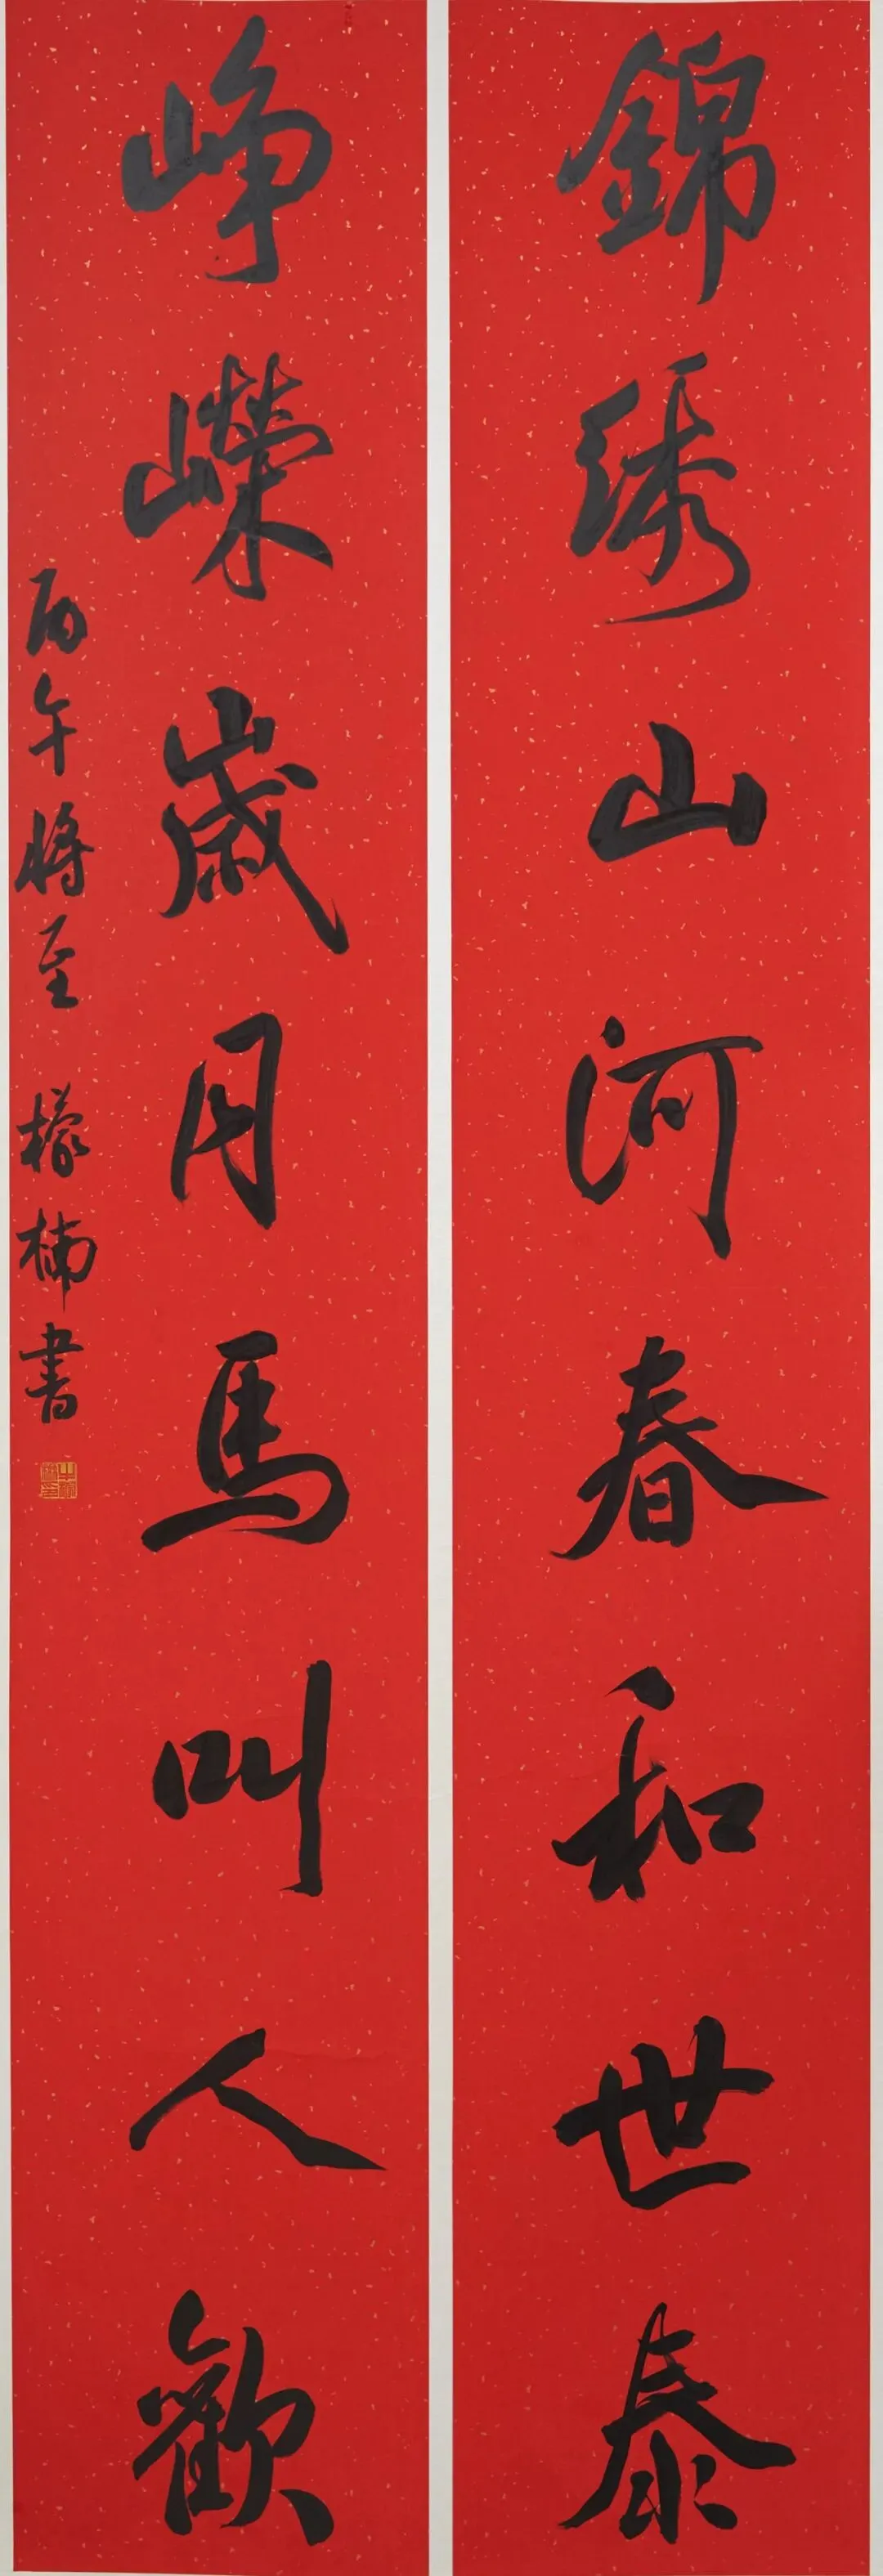 錦綉山河春和世泰
崢嶸歲月馬叫人歡
丙午將至 檬楠書